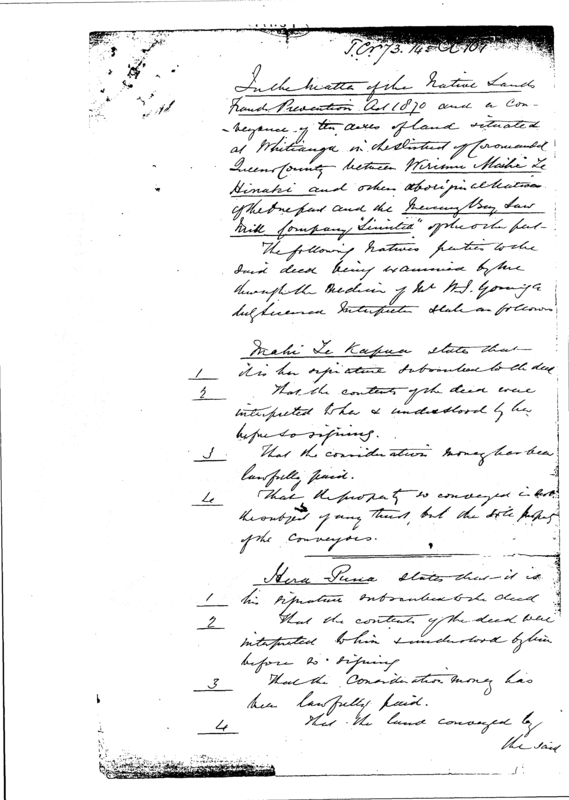 In the Matter of the Native Lands
Frauds Prevention Act 1870 and a Con-
-veyance of ten acres of land situated
at Whitianga in the District of Coromandel
Queens County between Wirimu
Hinaki and others aboriginal Natives
of the one part and the Mercury Bay Saw
Mill Company "Limited" of the other part
The following Natives parties to the
said deed being examined by me
through the Medium of Mr W. J. Young a
duly licensed Interpreter state as follows
Mahi Te Kapua states that
1 it is her signature subscribed to the deed
2 That the contents of the deed were
interpreted to her & understood by her
before so signing.
3 That the consideration money has been
lawfully paid.
4 That the property so conveyed is not
the subject of any trust, but the sole property
of the conveyors.
Hera Puna states that it is
1 his signature subscribed to the deed
2 That the contents of the deed were
interpreted to him & understood by him
before so signing
3 That the Consideration money has
been lawfully paid.
4 That the land conveyed by
the said